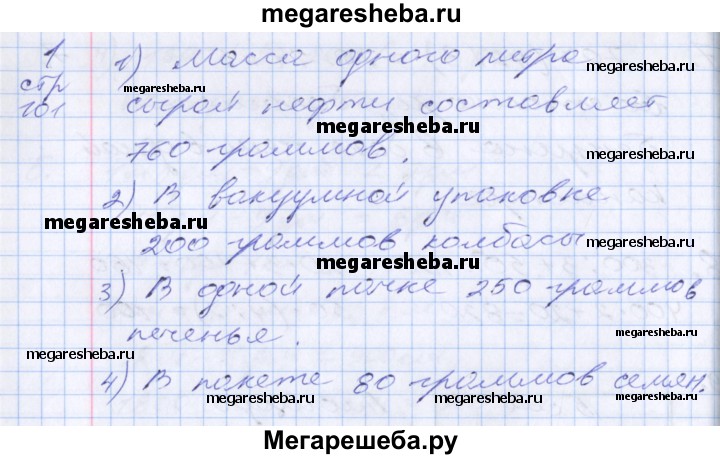 megaresheba.ru
1 1) Масса одного литра
megaresheba.ru megaresheba.ru
стр
101 сырой нефти составляет
megaresheba.ru
760 граммов.
megaresheba.ru
2) В вакуумной упаковке
megaresheba.ru megaresheba.ru
200 граммов колбасы
megaresheba.ru
3) В одной пачке 250 граммов
megaresheba.ru
печенья.
megaresheba.ru
4) В пакете 80 граммов семян.
megaresheba.ru megaresheba.ru
Мегарешеба.ру